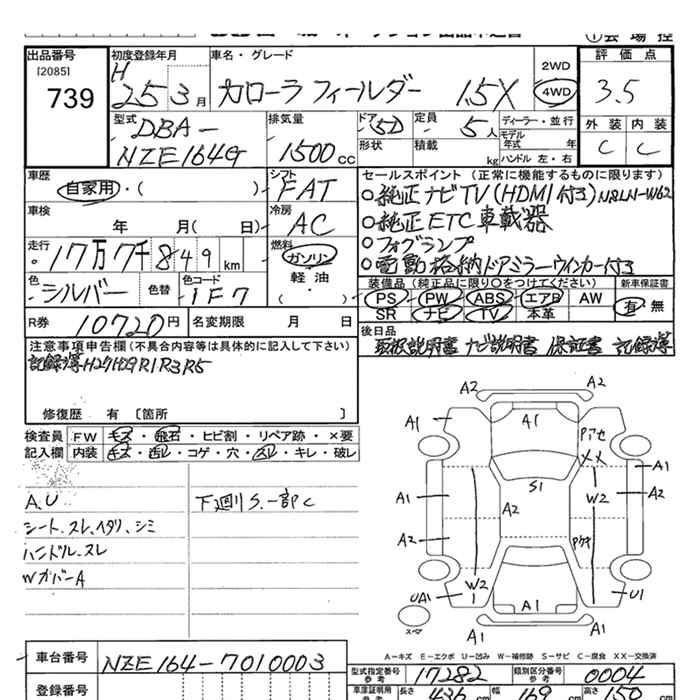 ①会場控
出品番号 初度登録年月 車名・グレード 2WD 評価点
[2085] H
739 25 3月 カローラフィールダー 1.5X 4WD 3.5
型式 排気量 ドア 5D 定員 5人 ディーラー・並行 外装 内装
DBA- モデル年式 年 C C
NZE164G 1500cc 形状 積載 kg ハンドル 左・右
車歴 シフト セールスポイント(正常に機能するものに限ります)
自家用・( ) FAT ○純正ナビTV(HDMI付き)NSLN-W62
車検 冷房 ○純正ETC車載器
年 月( 日) AC ○フォグランプ
走行 燃料 ○電動格納ドアミラーウインカー付き
17万7千849km ガソリン
軽油・( )
色 色替 色コード 装備品(純正品に限り○をつけてください) 新車保証書
シルバー 1F7 PS PW ABS エアB AW 有・無
SR ナビ TV 本革
R券 10720円 名変期限 月 日 後日品
取扱説明書 ナビ説明書 保証書 記録簿
注意事項申告欄(不具合内容等は具体的に記入して下さい)
記録簿H27H29R1R3R5
修復歴 有 [箇所 ]
検査員 FW キズ・飛石・ヒビ割・リペア跡・×要
記入欄 内装 キズ・汚レ・コゲ・穴・スレ・キレ・破レ
A.U 下廻りS.一部C
シート.スレ.ヘタリ、シミ
ハンドル.スレ
WカバーA
A2 A2
A1 A1
Pアセ
XX
A1
S1 W2 A2
A1 A2
A2 Pクキ
W2
UA1 1 A1 U1
スペア A1
A-キズ E-エクボ U-凹み W-補修跡 S-サビ C-腐食 XX-交換済
車台番号 NZE164-7010003 型式指定番号 参考 17282 類別区分番号 参考 0004
登録番号 車庫証明用 長さ 436cm 幅 169cm 高さ 150cm